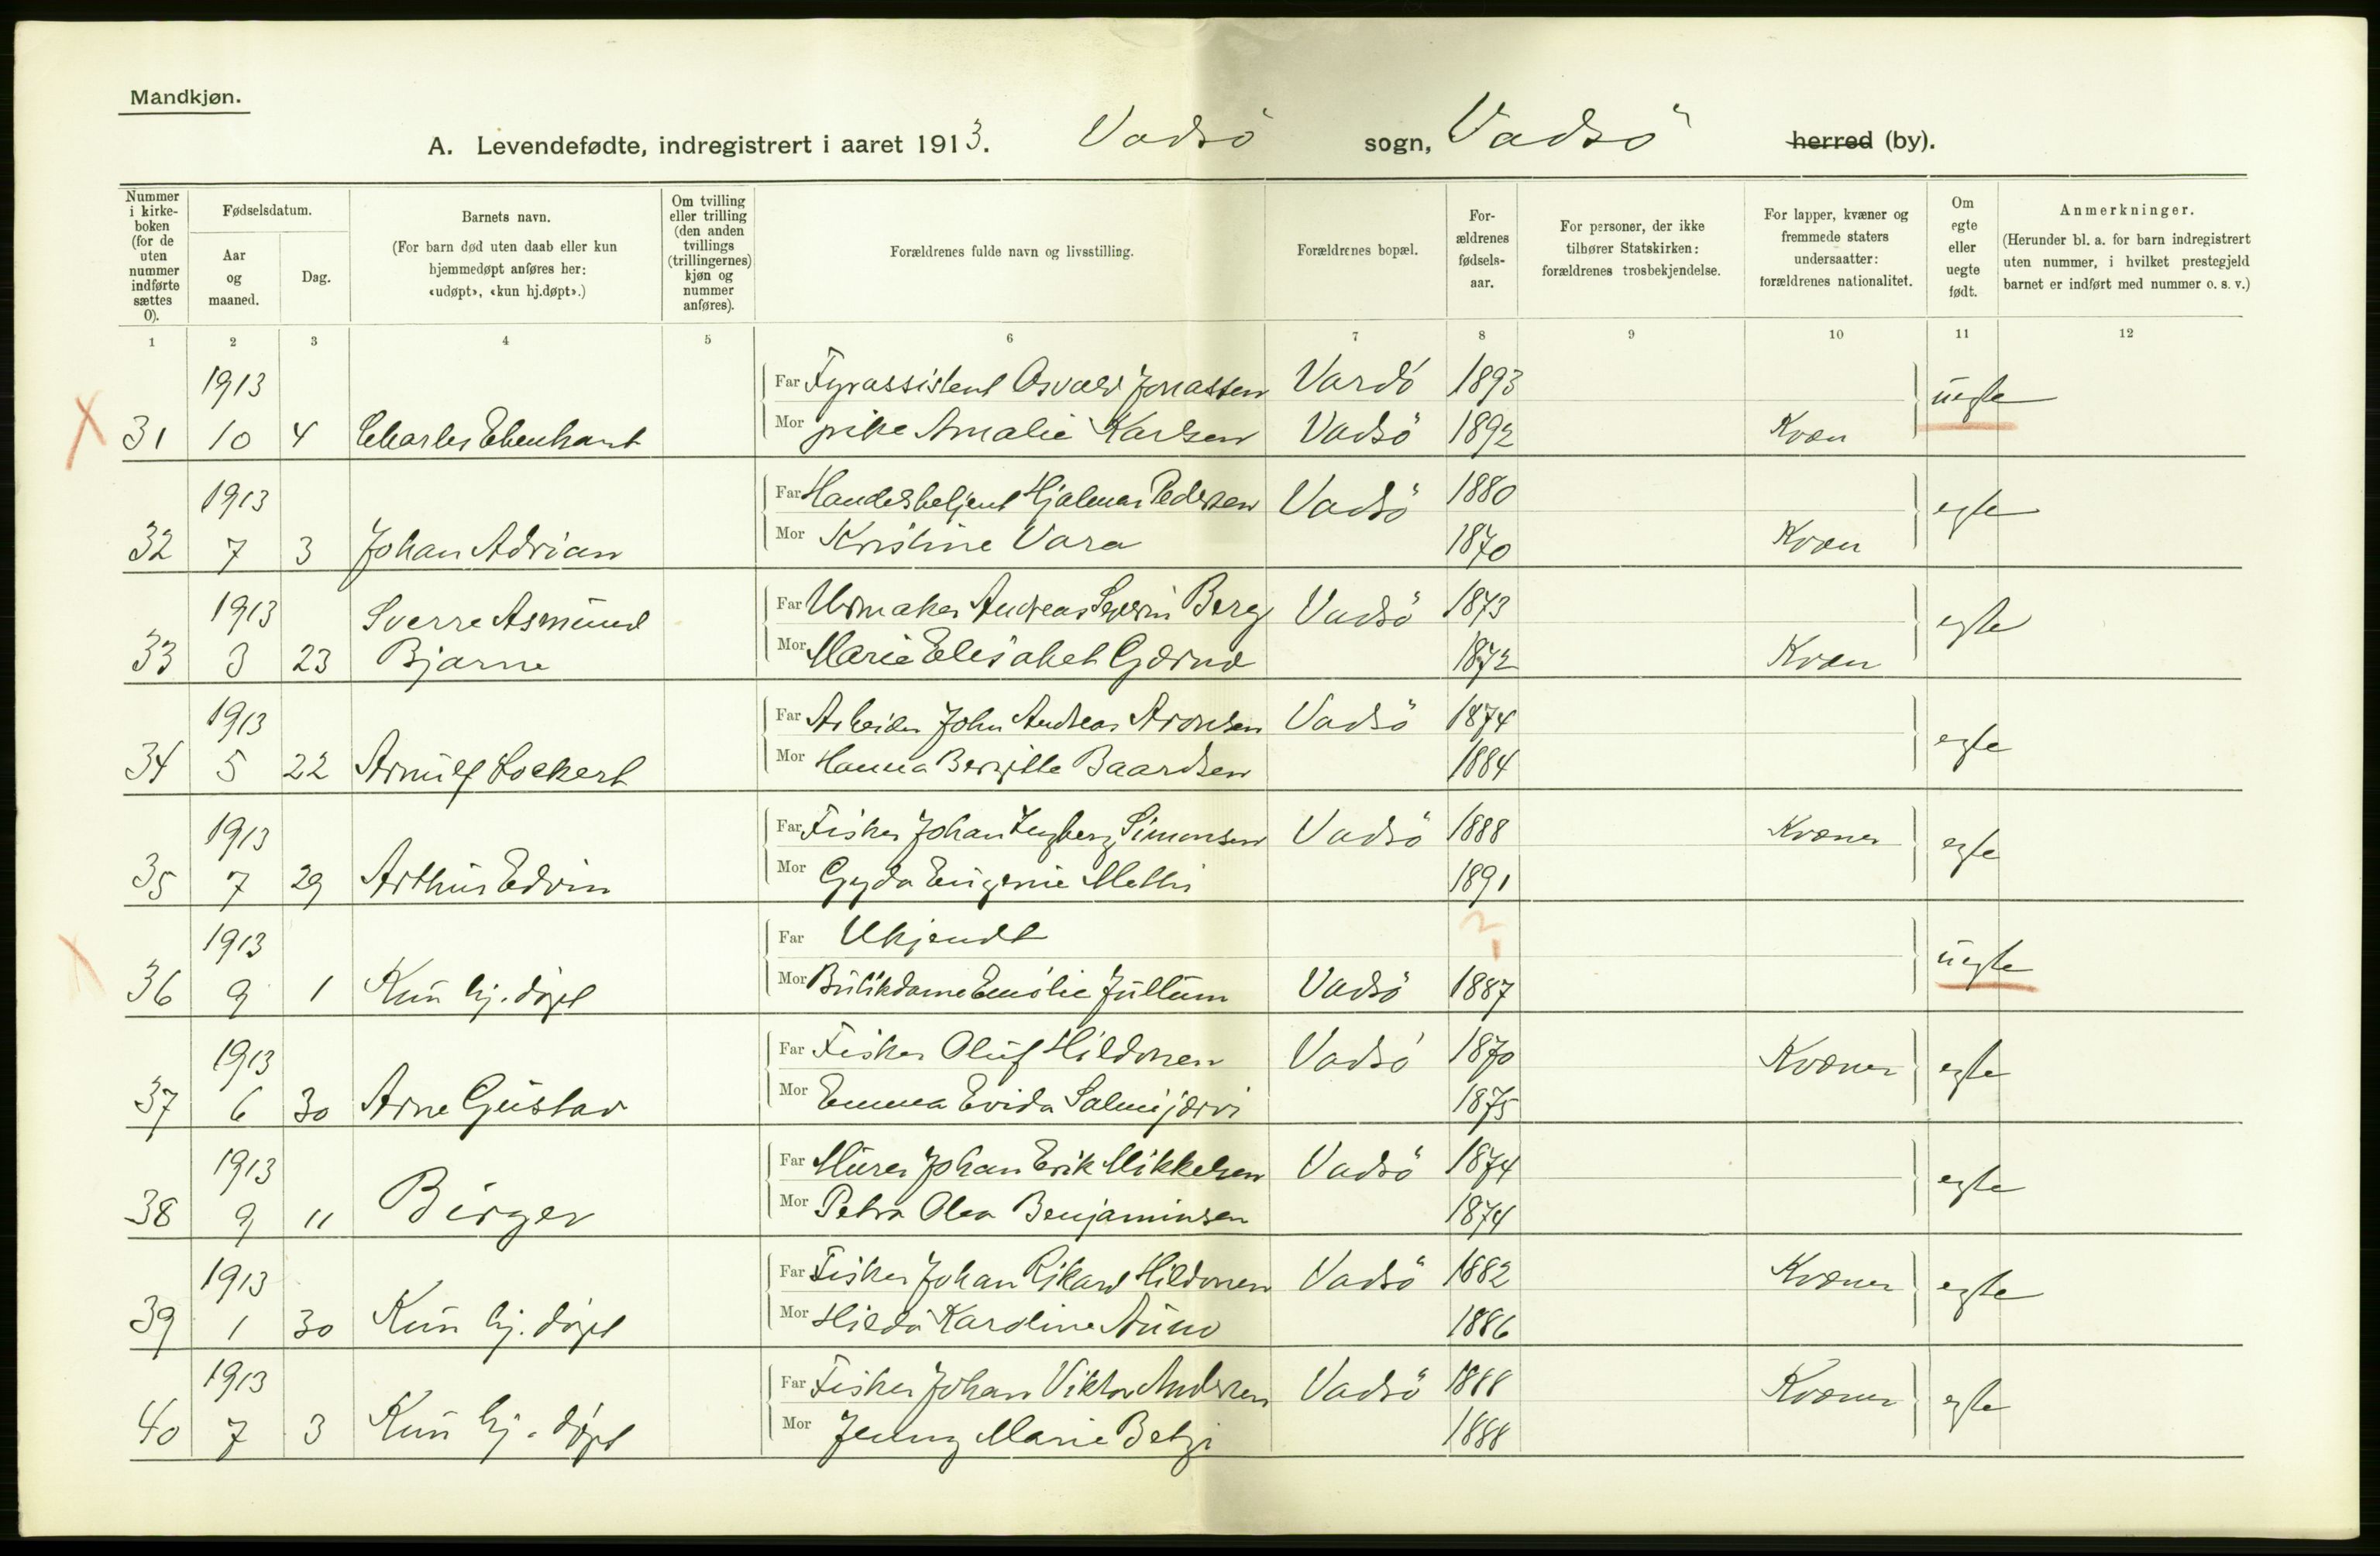 Mandkjøn.
A. Levendefødte, indregistrert i aaret 1913. Vadsö sogn, Vadsö herred (by).
Nummer i kirke-boken (for de uten nummer indførte sættes 0).
Fødselsdatum.
Aar og maaned.
Dag.
Barnets navn.
(For barn død uten daab eller kun hjemmedøpt anføres her: «udøpt», «kun hj.døpt».)
Om tvilling eller trilling (den anden tvillings (trillingernes) kjøn og nummer anføres).
Forældrenes fulde navn og livsstilling.
Forældrenes bopæl.
For-ældrenes fødsels-aar.
For personer, der ikke tilhører Statskirken: forældrenes trosbekjendelse.
For lapper, kvæner og fremmede staters undersaatter: forældrenes nationalitet.
Om egte eller uegte født.
Anmerkninger.
(Herunder bl. a. for barn indregistrert uten nummer, i hvilket prestegjeld barnet er indført med nummer o. s. v.)
1 2 3 4 5 6 7 8 9 10 11 12
1913 Far Fyrassistent Osvald Jonassen Vardö 1893 uegte
31 10 4 Charles Ebenhart Mor pike Amalie Karlsen Vadsö 1892 Kvæn
1913 Far Handelsbetjent Hjalmar Pedersen Vadsö 1880 egte
32 7 3 Johan Adrian Mor Kristine Vara 1870 Kvæn
1913 Sverre Asmund Far Urmaker Andreas Severin Berg Vadsö 1873 egte
33 3 23 Bjarne Mor Marie Elisabet 1872 Kvæn
1913 Far Arbeider John Andreas Aronsen Vadsö 1874 egte
34 5 22 Arnulf Lockert Mor Hanna Bergitte Baardsen 1884
1913 Far Fisker Johan Ingberg Simonsen Vadsö 1888 Kvæner egte
35 7 29 Arthur Edvin Mor Gyda Eugenie 1891
1913 Far Ukjendt ? uegte
36 9 1 Kun hj. døpt Mor Butikdame Emilie Vadsö 1887
1913 Far Fisker Oluf Hildonen Vadsö 1870 Kvæner egte
37 6 30 Arne Gustav Mor Emma Evida Salmijærvi 1875
1913 Far Murer Johan Erik Mikkelsen Vadsö 1874 egte
38 9 11 Birger Mor Petra Olea Benjaminsen 1874
1913 Far Fisker Johan Rikard Hildonen Vadsö 1882 Kvæner egte
39 1 30 Kun hj. døpt Mor Hilda Karoline 1886
1913 Far Fisker Johan Viktor Andersen Vadsö 1888 Kvæner egte
40 7 3 Kun hj. døpt Mor Jenny Marie 1888